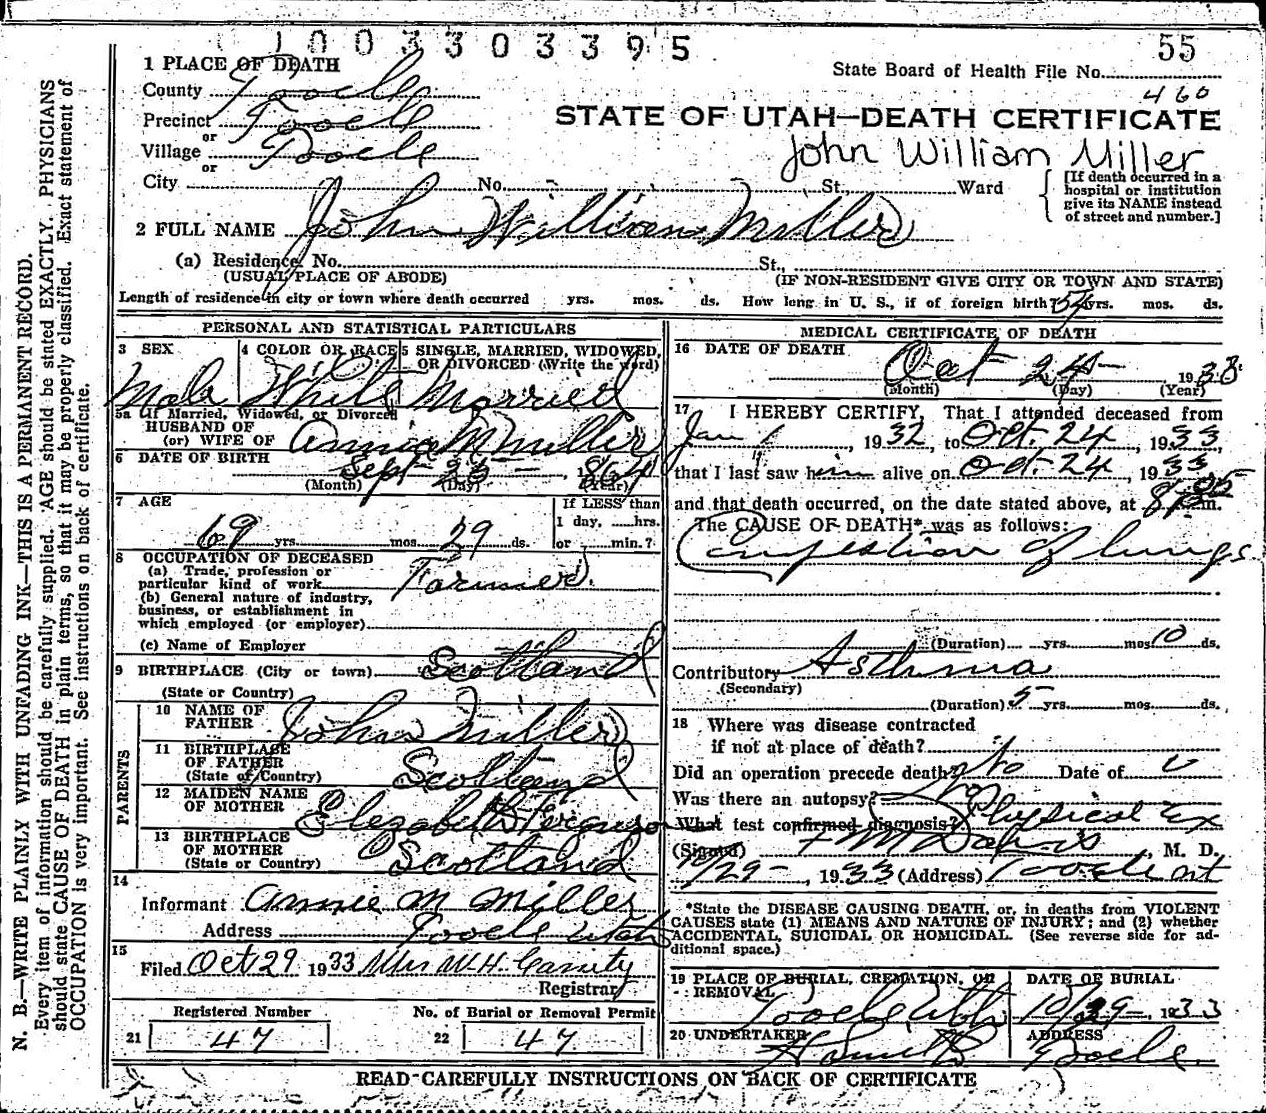 003303395
55
1 PLACE OF DEATH
State Board of Health File No.
460
County Tooele
STATE OF UTAH—DEATH CERTIFICATE
Precinct Tooele
or
John William Miller
Village Tooele
or
City No. St., Ward
[If death occurred in a
hospital or institution
give its NAME instead
of street and number.]
2 FULL NAME John William Miller
(a) Residence, No. St.,
(USUAL PLACE OF ABODE) (IF NON-RESIDENT GIVE CITY OR TOWN AND STATE)
Length of residence in city or town where death occurred yrs. mos. ds. How long in U. S., if of foreign birth? yrs. mos. ds.
PERSONAL AND STATISTICAL PARTICULARS
3 SEX 4 COLOR OR RACE 5 SINGLE, MARRIED, WIDOWED,
OR DIVORCED (Write the word)
Male White Married
5a If Married, Widowed, or Divorced
HUSBAND OF
(or) WIFE OF Annie M Miller
6 DATE OF BIRTH Sept 25 1864
(Month) (Day) (Year)
7 AGE If LESS than
1 day, hrs.
69 yrs. mos. 29 ds. or min.?
8 OCCUPATION OF DECEASED
(a) Trade, profession or
particular kind of work Farmer
(b) General nature of industry,
business, or establishment in
which employed (or employer)
(c) Name of Employer
9 BIRTHPLACE (City or town) Scotland
(State or Country)
PARENTS
10 NAME OF
FATHER John Miller
11 BIRTHPLACE
OF FATHER
(State of Country) Scotland
12 MAIDEN NAME
OF MOTHER Elezabeth Ferguson
13 BIRTHPLACE
OF MOTHER
(State or Country) Scotland
14
Informant Annie M Miller
Address Tooele Utah
15
Filed Oct 29 1933 Mrs W. H. Cassity
Registrar
Registered Number No. of Burial or Removal Permit
21 47 22 47
MEDICAL CERTIFICATE OF DEATH
16 DATE OF DEATH
Oct 24 1933
(Month) (Day) (Year)
17 I HEREBY CERTIFY, That I attended deceased from
Jan 1, 1932, to Oct. 24, 1933,
that I last saw him alive on Oct. 24, 1933,
and that death occurred, on the date stated above, at m.
The CAUSE OF DEATH* was as follows:
Congestion of lungs
(Duration) yrs. mos. 10 ds.
Contributory Asthma
(Secondary)
(Duration) 5 yrs. mos. ds.
18 Where was disease contracted
if not at place of death?
Did an operation precede death? No Date of
Was there an autopsy? no
What test confirmed diagnosis? Physical Ex
(Signed) Davis, M. D.
29, 1933 (Address) Tooele Ut
*State the DISEASE CAUSING DEATH, or, in deaths from VIOLENT
CAUSES state (1) MEANS AND NATURE OF INJURY; and (2) whether
ACCIDENTAL, SUICIDAL OR HOMICIDAL. (See reverse side for ad-
ditional space.)
19 PLACE OF BURIAL, CREMATION, OR
REMOVAL
Tooele Utah
DATE OF BURIAL
10/29, 1933
20 UNDERTAKER
ADDRESS
Tooele.
READ CAREFULLY INSTRUCTIONS ON BACK OF CERTIFICATE
N. B.—WRITE PLAINLY WITH UNFADING INK—THIS IS A PERMANENT RECORD.
Every item of information should be carefully supplied. AGE should be stated EXACTLY. PHYSICIANS
should state CAUSE OF DEATH in plain terms, so that it may be properly classified. Exact statement of
OCCUPATION is very important. See instructions on back of certificate.